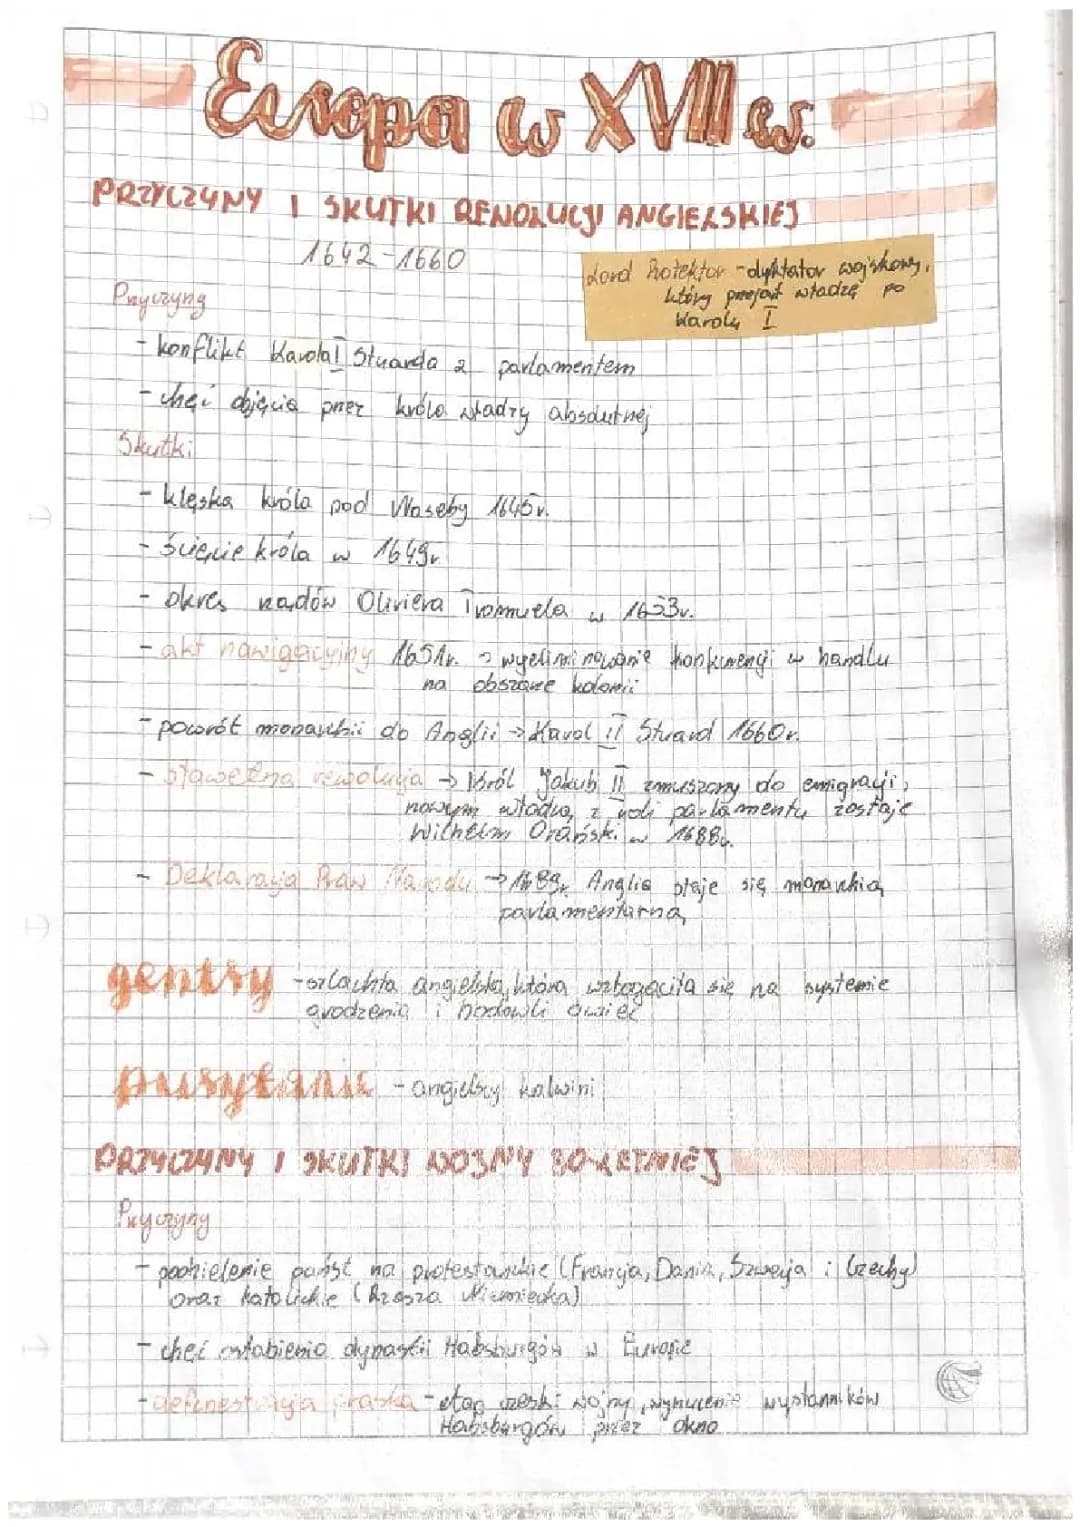 Europa w XVII w.
PRZYCZYNY I SKUTKI REWOLUCJI ANGIELSKIEJ
1642-1660
Lord Protektor - dyktator wojskowy,
który przejął władzę po
Karolu I
Przyczyny
- konflikt Karola I Stuarda z parlamentem
- chęć objęcia przez króla władzy absolutnej
Skutki
- klęska króla pod Naseby 1645r.
- ścięcie króla w 1649r.
- okres rządów Oliviera Tromwela w 1653r.
- akt nawigacyjny 1651r. → wyeliminowanie konkurencji w handlu
na obszarze kolonii
- powrót monarchii do Anglii → Karol II Stuard 1660r.
- sławetna rewolucja → Król Jakub II zmuszony do emigracji,
nowym władcą z woli parlamentu zostaje
Wilhelm Orański w 1688r.
- Deklaracja Praw Narodu → 1689r. Anglia staje się monarchią
parlamentarną
gentry - szlachta angielska, która wzbogaciła się na systemie
grodzenia i hodowli owiec
purytanie - angielscy kalwini
PRZYCZYNY I SKUTKI WOJNY 30-LETNIEJ
Przyczyny
- podzielenie państ na protestanckie (Francja, Dania, Szwecja i Czechy)
oraz katolickie (Rzesza Niemiecka)
- chęć osłabienia dynastii Habsburgów w Europie
- defenestracja praska - etap czeski wojny, wyrzucenie wysłanników
Habsburgów przez okno